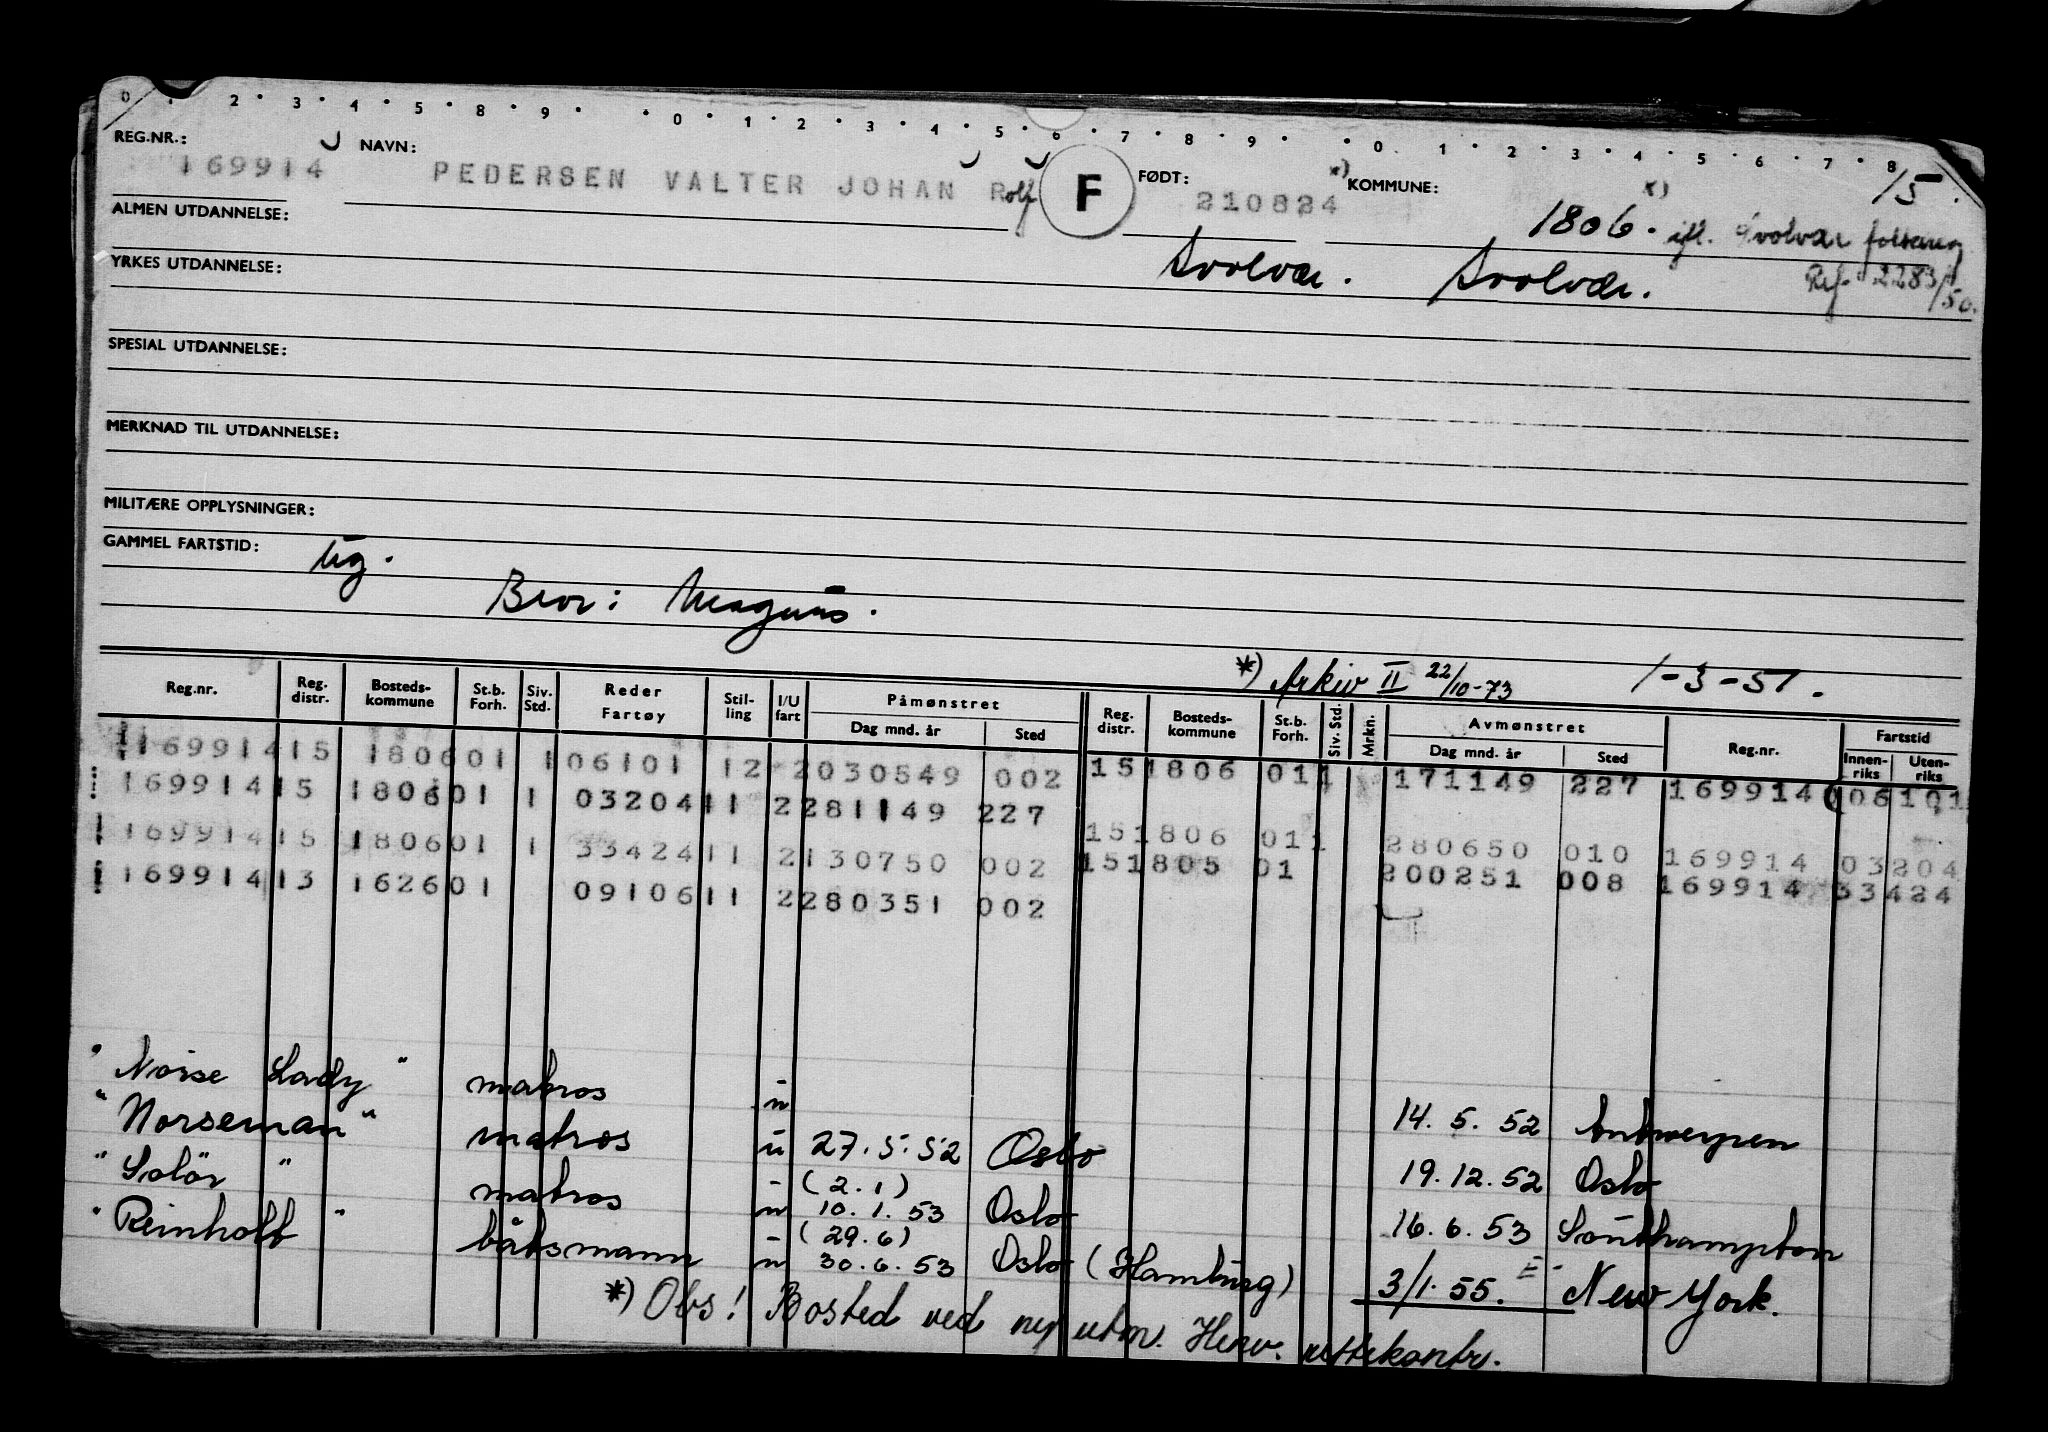 0 · 2 · 3 · 4 · 5 · 8 · 9 · · 0 · 1 · 2 · 3 · 4 · 5 · 6 · 7 · 8 · 9 · · 0 · 1 · 2 · 3 · 4 · 5 · 6 · 7 · 8
REG.NR.: 169914 NAVN: PEDERSEN VALTER JOHAN Rolf F FØDT: 210824 *) KOMMUNE: *) 15
1806. ifl. Svolvær
ALMEN UTDANNELSE:
Svolvær. Svolvær. Ref. 2283/50.
YRKES UTDANNELSE:
SPESIAL UTDANNELSE:
MERKNAD TIL UTDANNELSE:
MILITÆRE OPPLYSNINGER:
GAMMEL FARTSTID: Ug.
Bror: Magnus.
*) Arkiv II 22/10-73 1-3-51.
Reg.nr. Reg. distr. Bosteds- kommune St.b. Forh. Siv. Std. Reder Fartøy Stil- ling I/U fart Påmønstret Dag mnd. år Sted Reg. distr. Bosteds- kommune St.b. Forh. Siv. Std. Mrkn. Avmønstret Dag mnd. år Sted Reg.nr. Fartstid Innen- riks Uten- riks
169914 15 1806 01 1 06101 12 2 030549 002 15 1806 01 1 171149 227 169914 06101
169914 15 1806 01 1 03204 11 2 281149 227 15 1806 01 1 280650 010 169914 03204
169914 15 1806 01 1 33424 11 2 130750 002 15 1805 01 200251 008 169914 33424
169914 13 1626 01 09106 11 2 280351 002
" Norse Lady " matros u 14. 5. 52 Antwerpen
" Norseman " matros u 27. 5. 52 Oslo 19. 12. 52 Oslo
" Solör " matros u (2.1) 10. 1. 53 Oslo 16. 6. 53 Southampton
" Reinholt " båtsmann u (29.6) 30. 6. 53 Oslo (Hamburg) 3/1. 55. New York.
*) Obs! Bosted ved ny utm. Henv. rettekontr.